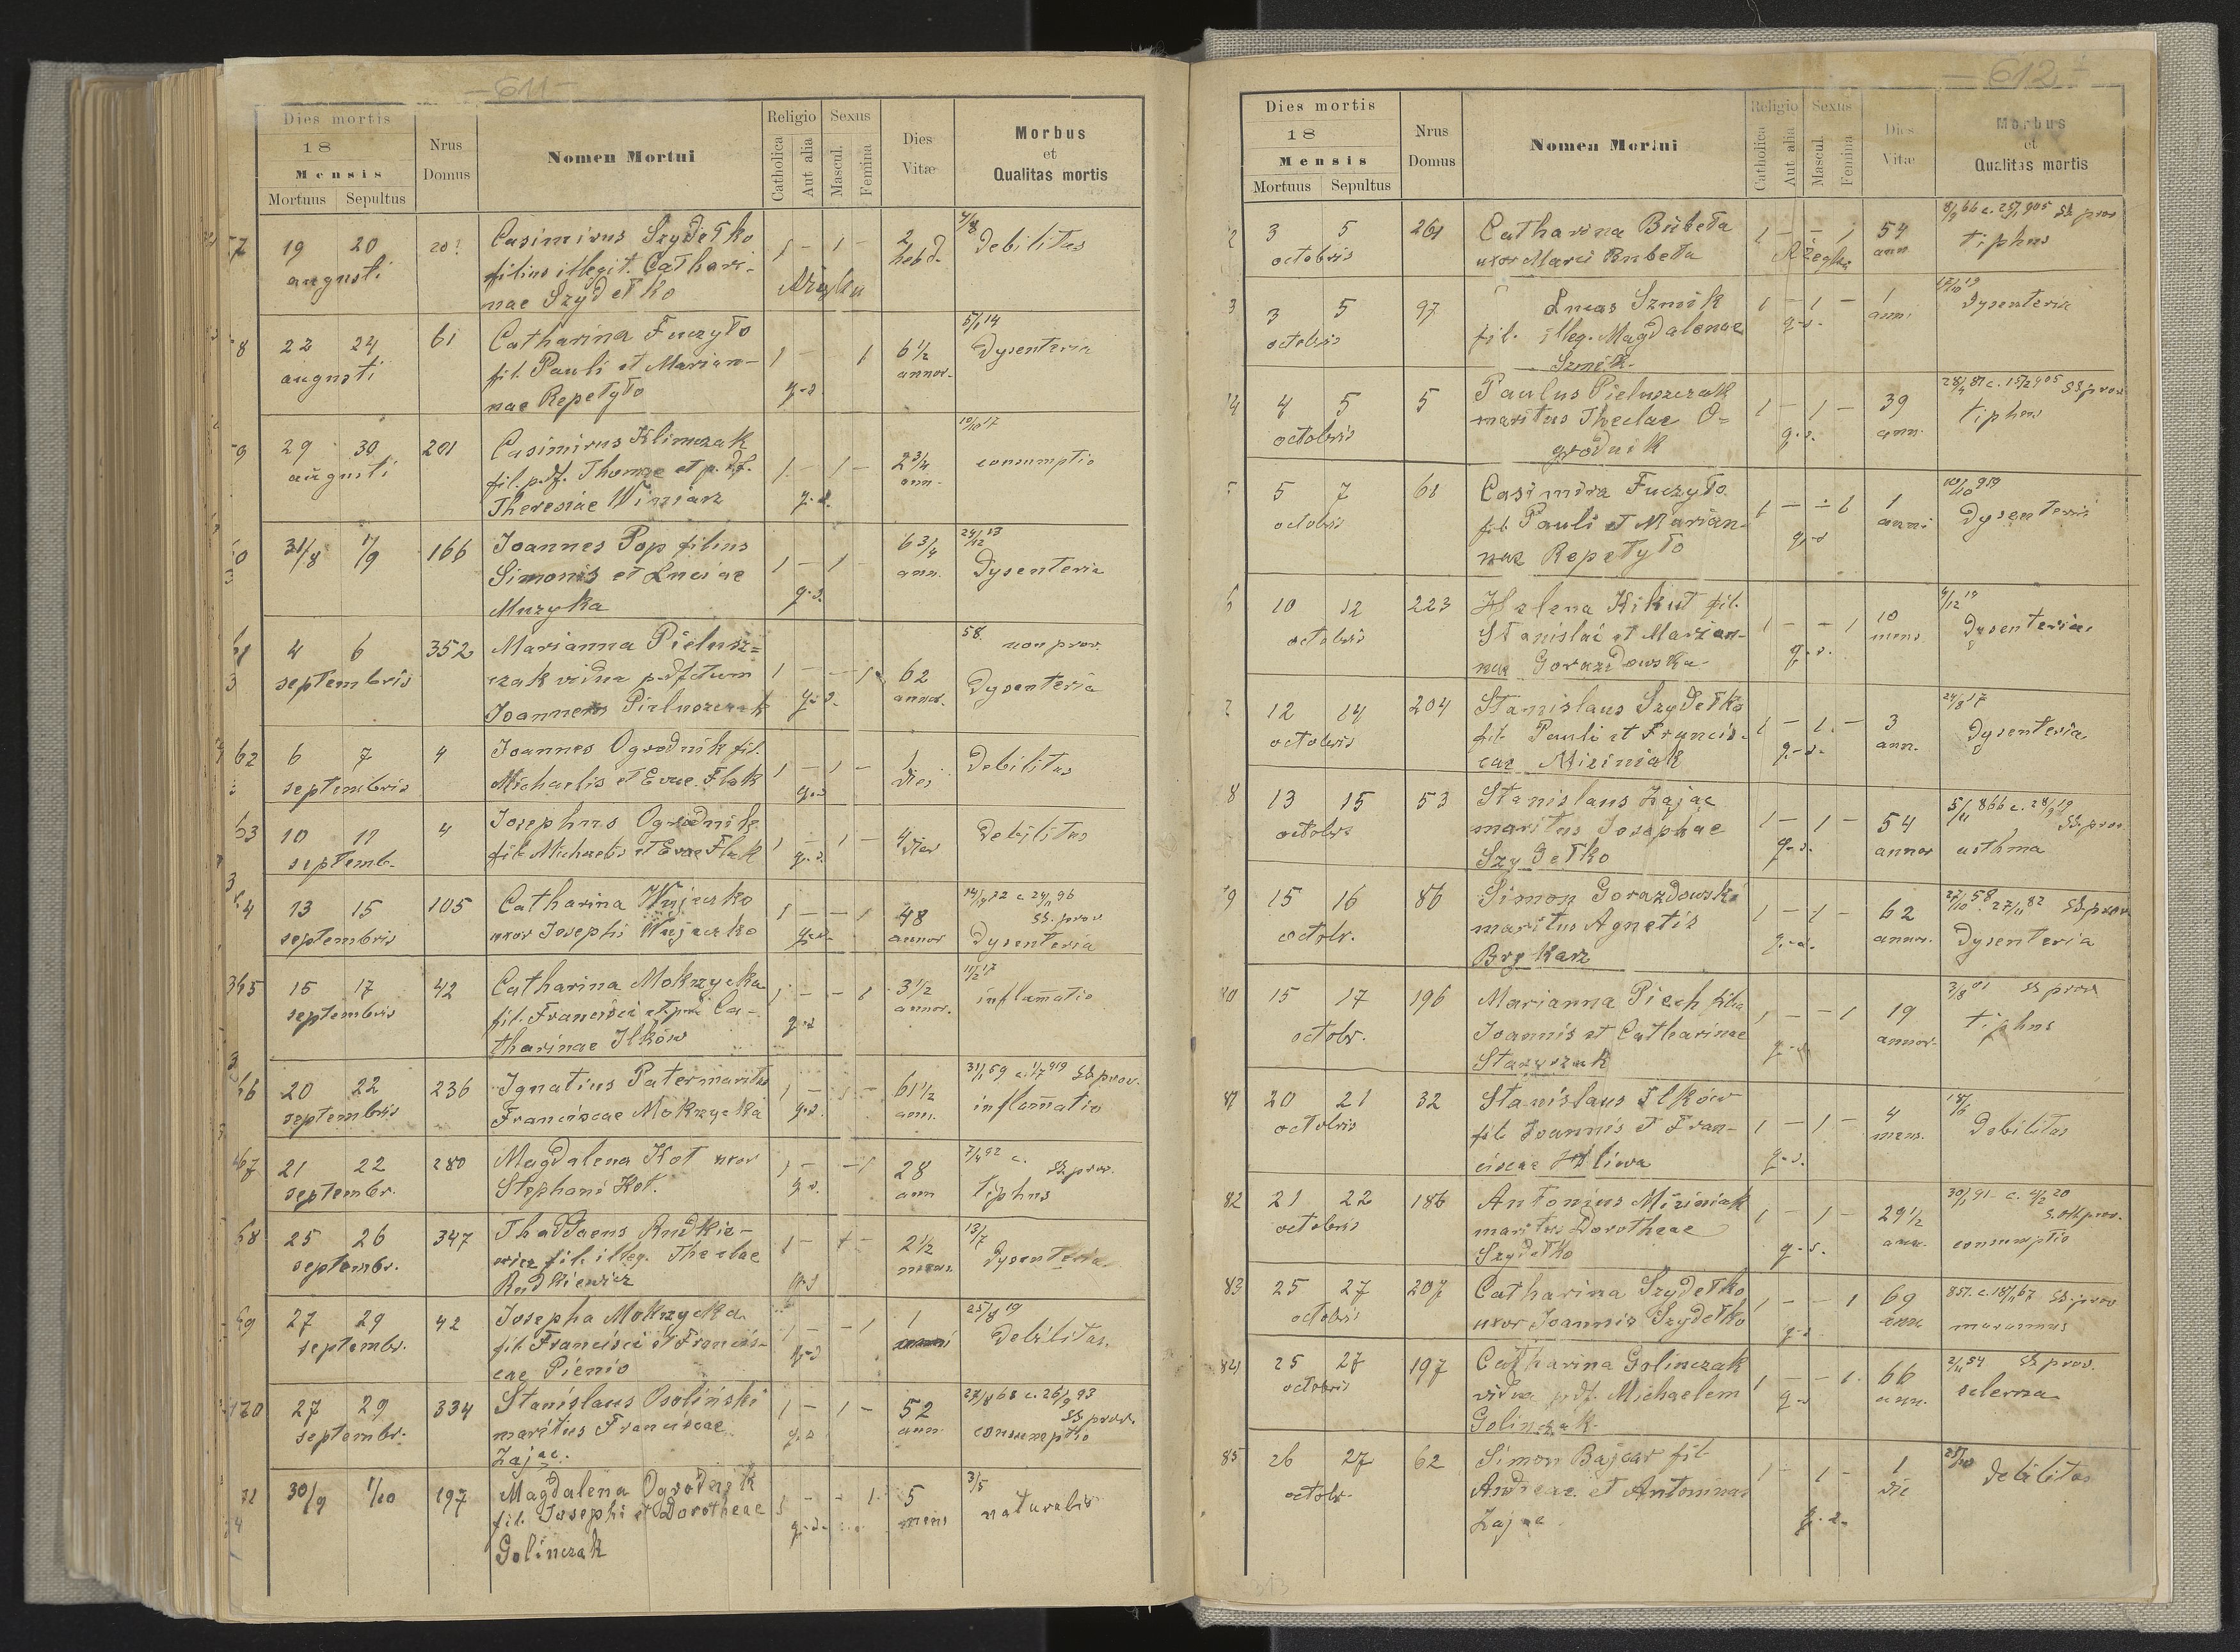 - 611 -
Dies mortis
18
Mensis
Mortuus Sepultus
Nrus
Domus
Nomen Mortui
Religio
Catholica
Aut alia
Sexus
Mascul.
Femina
Dies
Vitæ
Morbus
et
Qualitas mortis
57 19 20 Casimirus Szydełko 1 - 1 - 2 debilitas
augusti filius illegit. Cathari- hebd.
nae Szydełko
58 22 24 61 Catharina Fuczyło 1 - 1 6 1/2 5/1 14
augusti fil. Pauli et Marian- annor. Dysenteria
nae Repetyło q-s
59 29 30 201 Casimirus Klimczak 1 - 1 - 2 3/4 10/10 17
augusti fil. p.df. Thomae et p.df. ann. consumptio
Theresiae Winiarz q-s.
60 31/8 1/9 166 Joannes Pop filius 1 - 1 6 3/4 24/12 13
Simonis et Luciae ann. Dysenteria
Muzyka q-s.
61 4 6 352 Marianna Pielusz= 1 - - 1 62 58. non prov.
septembris czak vidua p.dfctum annor. Dysenteria
Joannem Pieluszczak q-s.
62 6 7 4 Joannes Ogrodnik fil. 1 - 1 - 1 Debilitas
septembris Michaelis et Evae Flak q-s diei
63 10 11 4 Josephus Ogrodnik 1 - 1 - 4 dier Debilitas
septemb. fil. Michaelis et Evae Flak q-s.
64 13 15 105 Catharina Wujeszko 1 - - 1 48 SS. prov
septembris uxor Josephi q-s. annor Dysenteria
365 15 17 42 Catharina Mokrzycka 1 - - 1 3 1/2 11/2 17
septembris fil. Francisci et Ca- annor. inflamatio
tharinae Ilków q-s
66 20 22 236 Ignatius Pater maritus 1 - 61 1/2 31/1 59 c. 1/7 919 SS prov.
septembris Franciscae Mokrzycka q-s. ann. inflamatio
67 21 22 280 Magdalena Kot uxor 1 - - 1 28 7/4 92 c. SS prov.
septembr. Stephani Kot. q-s. ann tiphus
68 25 26 347 Thaddaeus Rudkie- 1 - 1 - 2 1/2 13/7
septembr. wicz fil. illeg. Theclae mens. Dysenteria
Rudkiewicz q-s
69 27 29 42 Josepha Mokrzycka 1 - - 1 1 25/8 19
septembr. fil. Francisci et Francis- anni Debilitas.
cae Pienio q-s
170 27 29 334 Stanislaus Osoliński 1 - 1 - 52 27/8 68 c. 26/9 93
septembr. maritus Franciscae ann. SS prov.
Zając. q-s consumptio
71 30/9 1/10 197 Magdalena Ogrodnik 1 - - 1 5 3/5
fil. Josephi et Dorotheae q-s. mens naturalis
Golinczak
- 612 -
Dies mortis
18
Mensis
Mortuus Sepultus
Nrus
Domus
Nomen Mortui
Religio
Catholica
Aut alia
Sexus
Mascul.
Femina
Dies
Vitæ
Morbus
et
Qualitas mortis
2 3 5 261 Catharina Bubeła 1 - - 1 54 SS prov
octobris uxor Marci Bubeła ann tiphus
3 3 5 97 Lucas Szmik 1 - 1 - 1 17/10 19
octobris fil. illeg. Magdalenae q-s. anni Dysenteria
Szmik.
74 4 5 5 Paulus Pieluszczak 1 - 1 - 39 SS prov
octobris maritus Theclae O= q-s. ann. tiphus
grodnik
5 5 7 61 Casimira Fuczyło 1 - - 1 1 919
octobris fil. Pauli et Marian- anni Dysenteria
nae Repetyło q-s
6 10 12 223 Helena Kikut fil. 1 - - 1 10 9/12 19
octobris Stanislai et Marian- mens Dysenteria
nae Gorazdowska q-s.
7 12 14 204 Stanislaus Szydełko 1 - 1 - 3 24/8 17
octobris fil. Pauli et Francis- q-s. ann. Dysenteria
cae Miziniak
8 13 15 53 Stanislaus Zając 1 - 1 - 54 5/11 866 c. 28/9 19
octobris maritus Josephae q-s. annor SS. prov.
Szydełko asthma
79 15 16 86 Simon Gorazdowski 1 - 1 - 62 27/10 58. 27/11 82 SS prov
octobr. maritus Agnetis q-s. annor. Dysenteria
Brykarz
80 15 17 196 Marianna Piech filia 1 - - 1 19 3/8 01 SS prov
octobr. Joannis et Catharinae annor. tiphus
q-s
81 20 21 32 Stanislaus Ilków 1 - 1 - 4 18/6
octobris fil. Joannis et Fran- mens. Debilitas
ciscae Hliwa q-s.
82 21 22 186 Antonius Miziniak 1 - 1 - 29 1/2 30/1 91 - c. 4/2 20
octobris maritus Dorotheae ann. prov.
Szydełko q-s. consumptio
83 25 27 207 Catharina Szydełko 1 - - 1 69 851. c. 18/11 67 SS prov
octobris uxor Joannis Szydełko q-s ann marasmus
84 25 27 197 Catharina Golinczak 1 - - 1 66 2/11 54 SS prov.
octobris vidua p.df. Michaelem q-s ann. sclerza
Golinczak.
85 26 27 62 Simon Bajcar fil. 1 - 1 - 1 25/10 debilitas
octobr. Andreae et Antoninae die
Zając q-s.
313